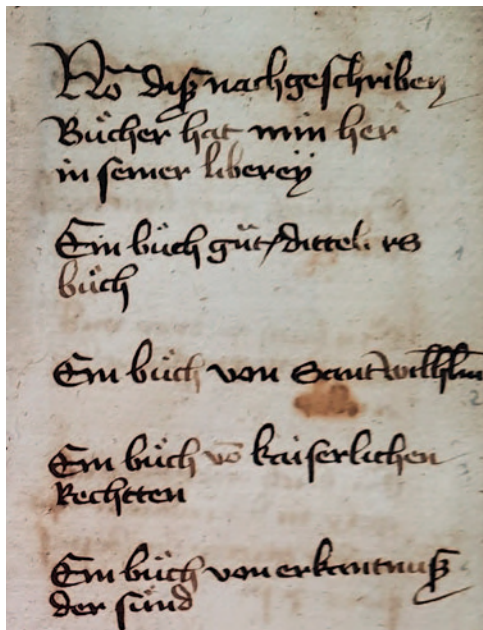 Nō diß nachgeschriben
Bücher hat min her
in seiner libereÿ
Ein bůch gůt
bůch
Ein bůch von Sant wilhlm
Ein bůch vō kaiserlichen
Rechtten
Ein bůch von erkantnuß
der sünd